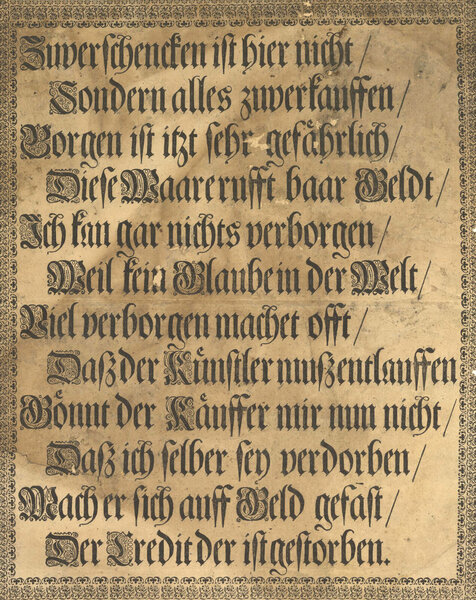 Zuverschencken ist hier nicht /
Sondern alles zuverkauffen /
Borgen ist itzt sehr gefährlich /
Diese Waare rufft baar Geldt /
Ich kan gar nichts verborgen /
Weil kein Glaube in der Welt /
Viel verborgen machet offt /
Daß der Künstler muß entlauffen
Gönnt der Käuffer mir nun nicht /
Daß ich selber sey verdorben /
Mach er sich auff Geld gefast /
Der Credit der ist gestorben.